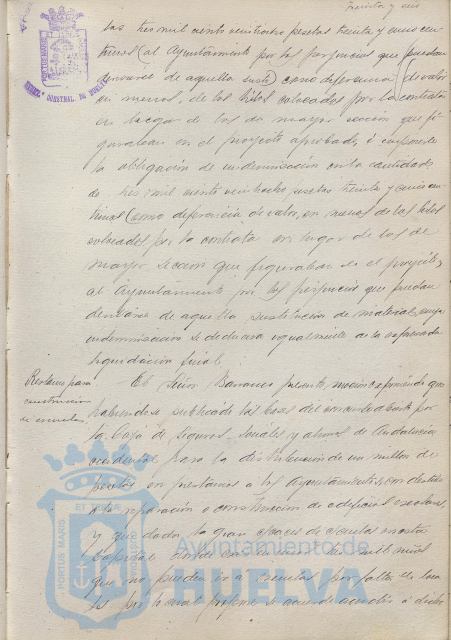 treinta y seis
las tres mil ciento veintiocho pesetas treinta y cinco cen
timos (al Ayuntamiento por los perjuicios que puedan
derivarse de aquella sust) como diferencia (de valor
en menos, de los tubos colocados por la contrata
en lugar de los de mayor sección que fi
guraban en el proyecto aprobado, é imponerle
la obligación de indemnización en la cantidad
de tres mil ciento veintiocho pesetas treinta y cinco cen
timos (como diferencia de valor, en menos de los tubos
colocados por la contrata en lugar de los de
mayor sección que figuraban en el proyecto,
al Ayuntamiento por los perjuicios que puedan
derivarse de aquella sustitución de material, cuya
indemnización se deducirá igualmente de la expresada
liquidación final.
Reclamo para
construcción
de escuelas
El Señor Barranco presentó moción exponiendo que
habiéndose publicado las bases del concurso abierto por
la Caja de Seguros Sociales y ahorros de Andalucía
occidental para la distribución de un millon de
pesetas en prestamos a los Ayuntamientos con destino
a la reparación o construcción de edificios escolares,
y que dada la gran escasez de escuelas en esta
Capital donde mil
que no pueden ir a escuelas por falta de loca
les por lo cual propone se acuerde acudir á dicho
PORTUS MARIS
ET TERRAE CUSTODIA
Ayuntamiento de
HUELVA